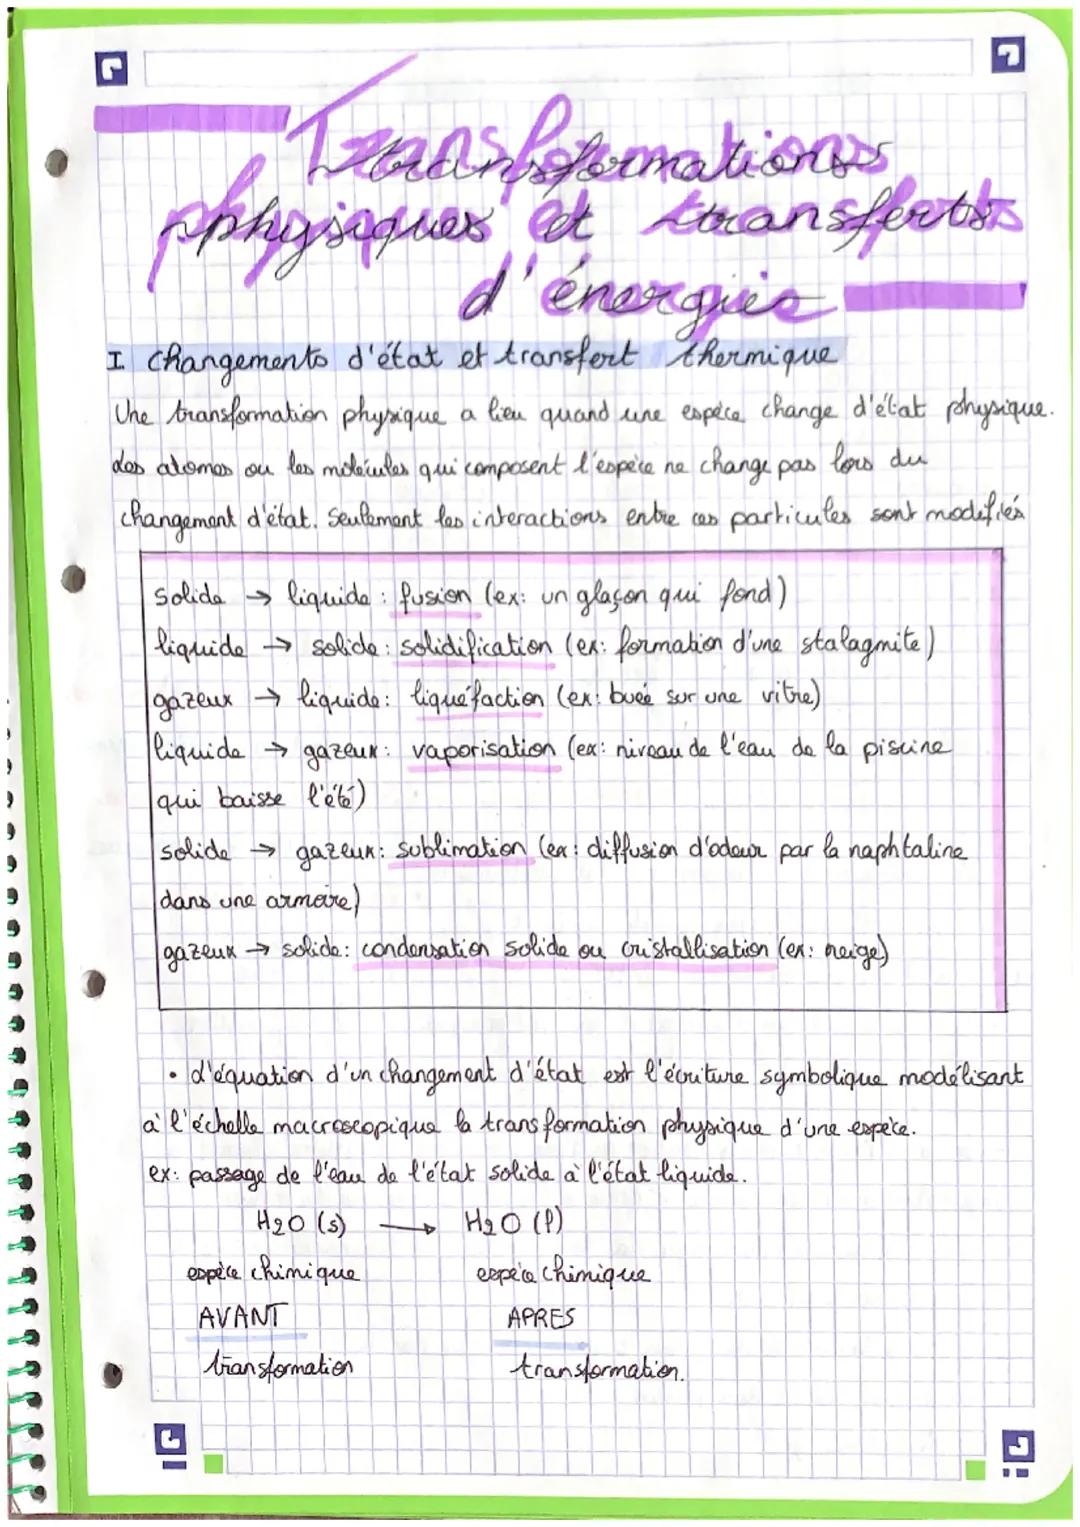 Transformations
physiques et transferts
d'énergie
I Changements d'état et transfert thermique
Une transformation physique a lieu quand une espèce change d'état physique.
Les atomes ou les molécules qui composent l'espèce ne change pas lors du
changement d'état. Seulement les interactions entre ces particules sont modifiés
solide → liquide : fusion (ex: un glaçon qui fond)
liquide → solide : solidification (ex: formation d'une stalagmite)
gazeux → liquide : liquéfaction (ex: buée sur une vitre)
liquide → gazeux : vaporisation (ex: niveau de l'eau de la piscine
qui baisse l'été)
solide → gazeux : sublimation (ex: diffusion d'odeur par la naphtaline
dans une armoire)
gazeux → solide : condensation solide ou cristallisation (ex: neige)
• L'équation d'un changement d'état est l'écriture symbolique modélisant
à l'échelle macroscopique la transformation physique d'une espèce.
ex: passage de l'eau de l'état solide à l'état liquide.
H2O (s) → H2O (l)
espèce chimique espèce chimique
AVANT APRES
transformation transformation.